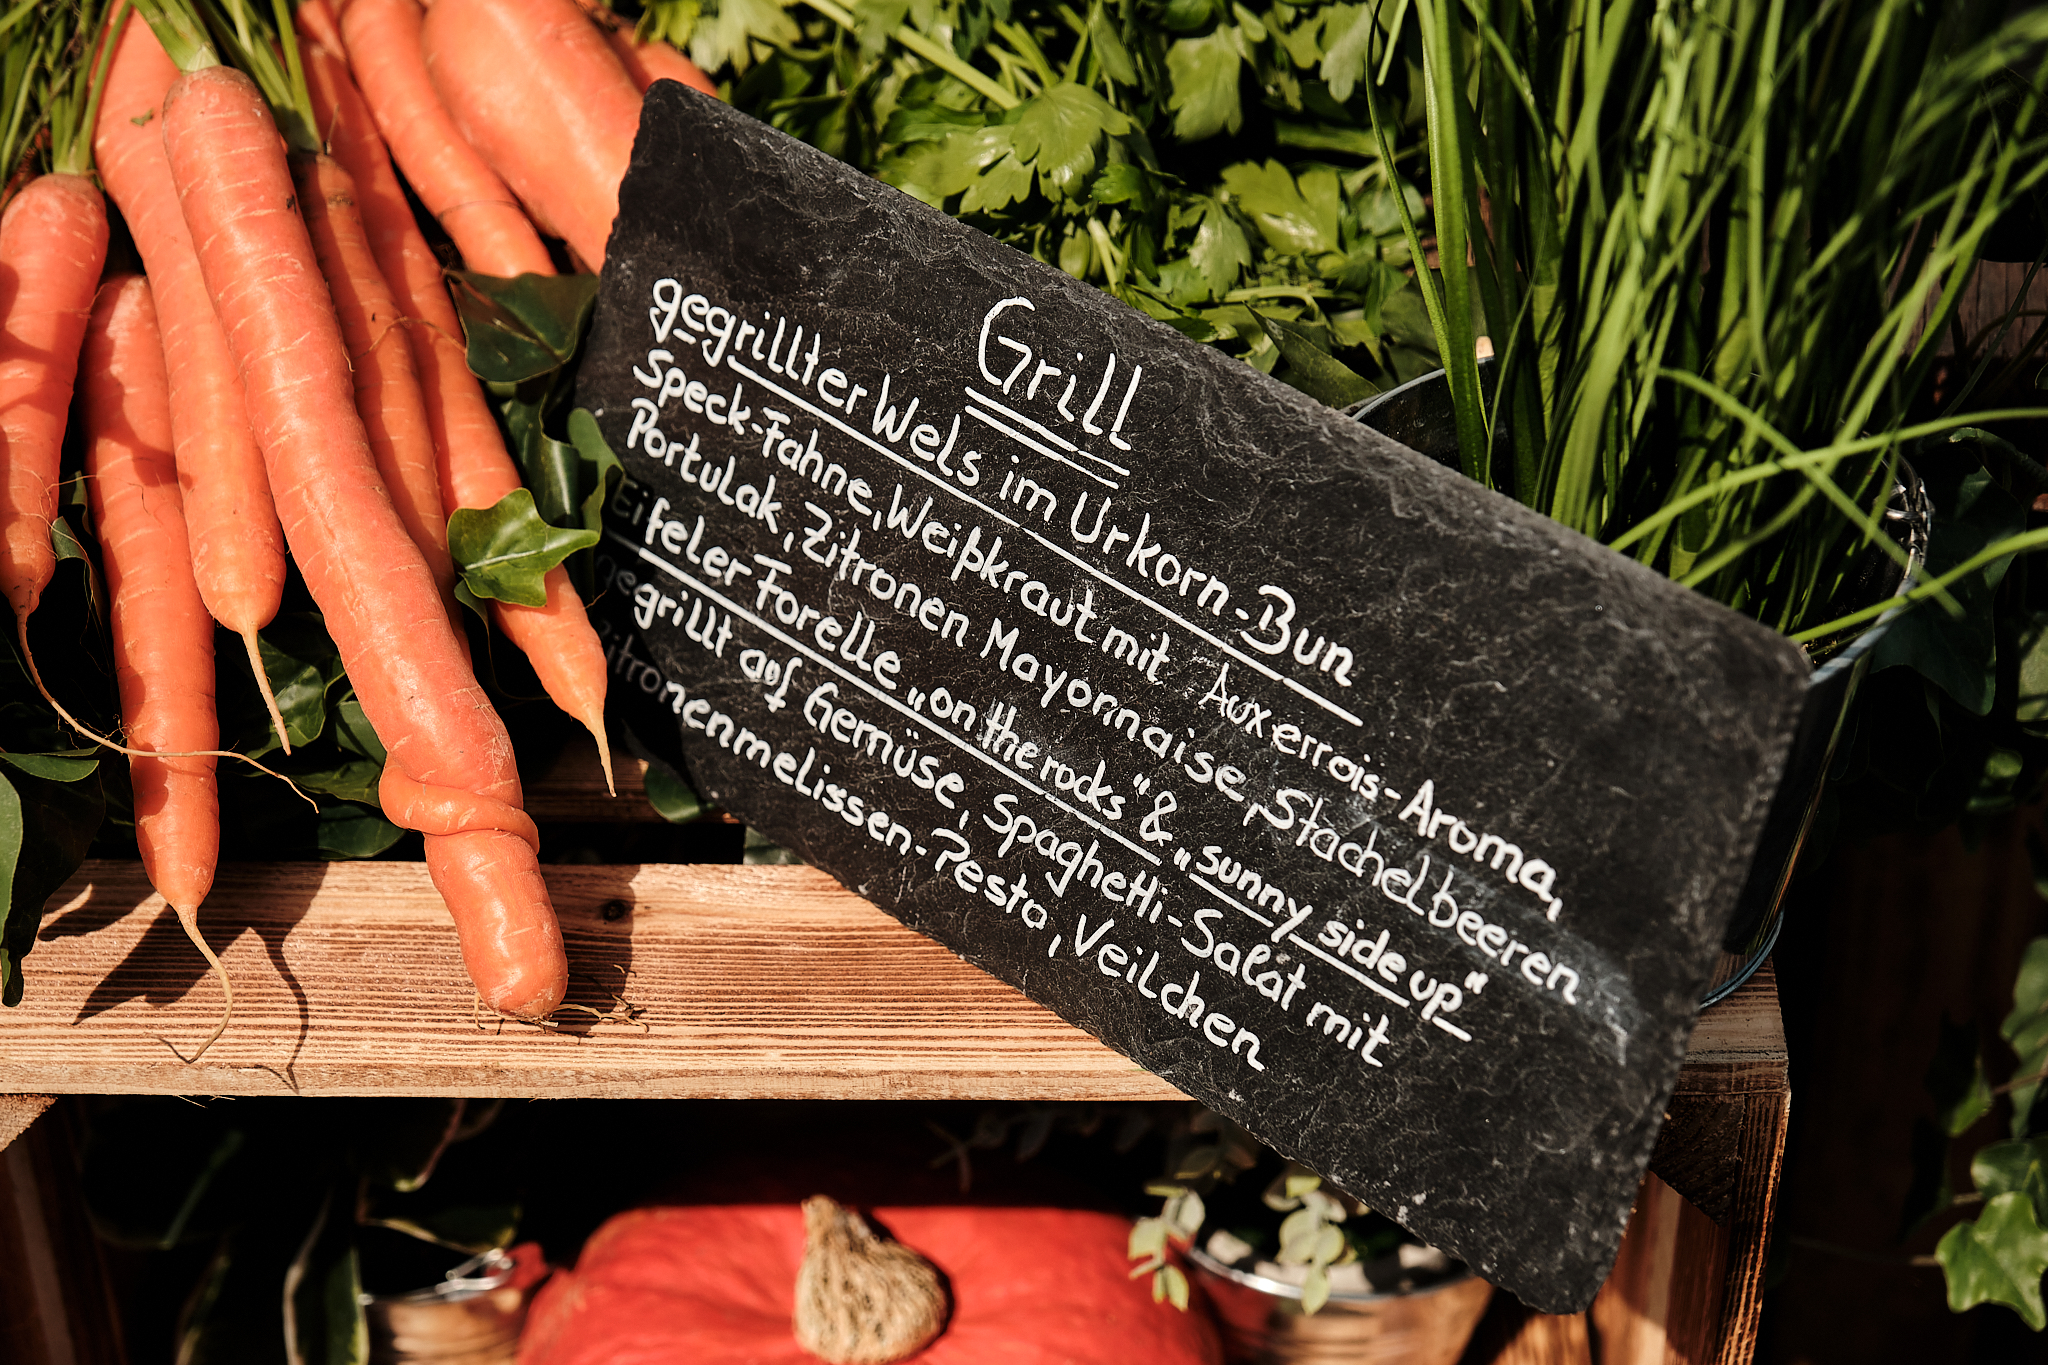 Grill
gegrillter Wels im Urkorn-Bun
Speck-Fahne, Weißkraut mit Auxerrois-Aroma,
Portulak, Zitronen Mayonnaise, Stachelbeeren
Eifeler Forelle „on the rocks" & „sunny side up"
gegrillt auf Gemüse, Spaghetti-Salat mit
Zitronenmelissen-Pesto, Veilchen